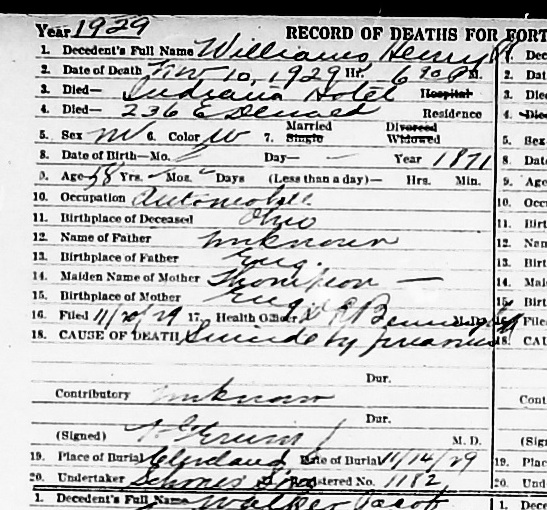 Year 1929 RECORD OF DEATHS FOR FORT
1. Decedent's Full Name Williams, Henry
2. Date of Death Nov 10, 1929 Hr. 6 30 P M.
3. Died— Indiana Hotel Hospital
4. Died— 236 E Residence
5. Sex M 6. Color W 7. Married Single Divorced Widowed
8. Date of Birth—Mo. — Day— — Year 1871
9. Age 58 Yrs. — Mos. Days (Less than a day)— Hrs. Min.
10. Occupation
11. Birthplace of Deceased Ohio
12. Name of Father Unknown
13. Birthplace of Father Eng.
14. Maiden Name of Mother Thompson —
15. Birthplace of Mother Eng.
16. Filed 11/20/29 17. Health Officer M.D.
18. CAUSE OF DEATH Suicide by
Dur.
Contributory Unknown
Dur.
(Signed) M. D.
19. Place of Burial Cleveland Date of Burial 11/14/29
20. Undertaker Registered No. 1182
1. Decedent's Full Name Walker Jacob
1. Dece
2. Dat
3. Died
4. Died
5. Sex
8. Date
9. Age
10. Occ
11. Birt
12. Nam
13. Birt
14. Maid
15. Birt
16. Filed
18. CAU
Cont
(Sign
19. Plac
20. Und
1. Dece